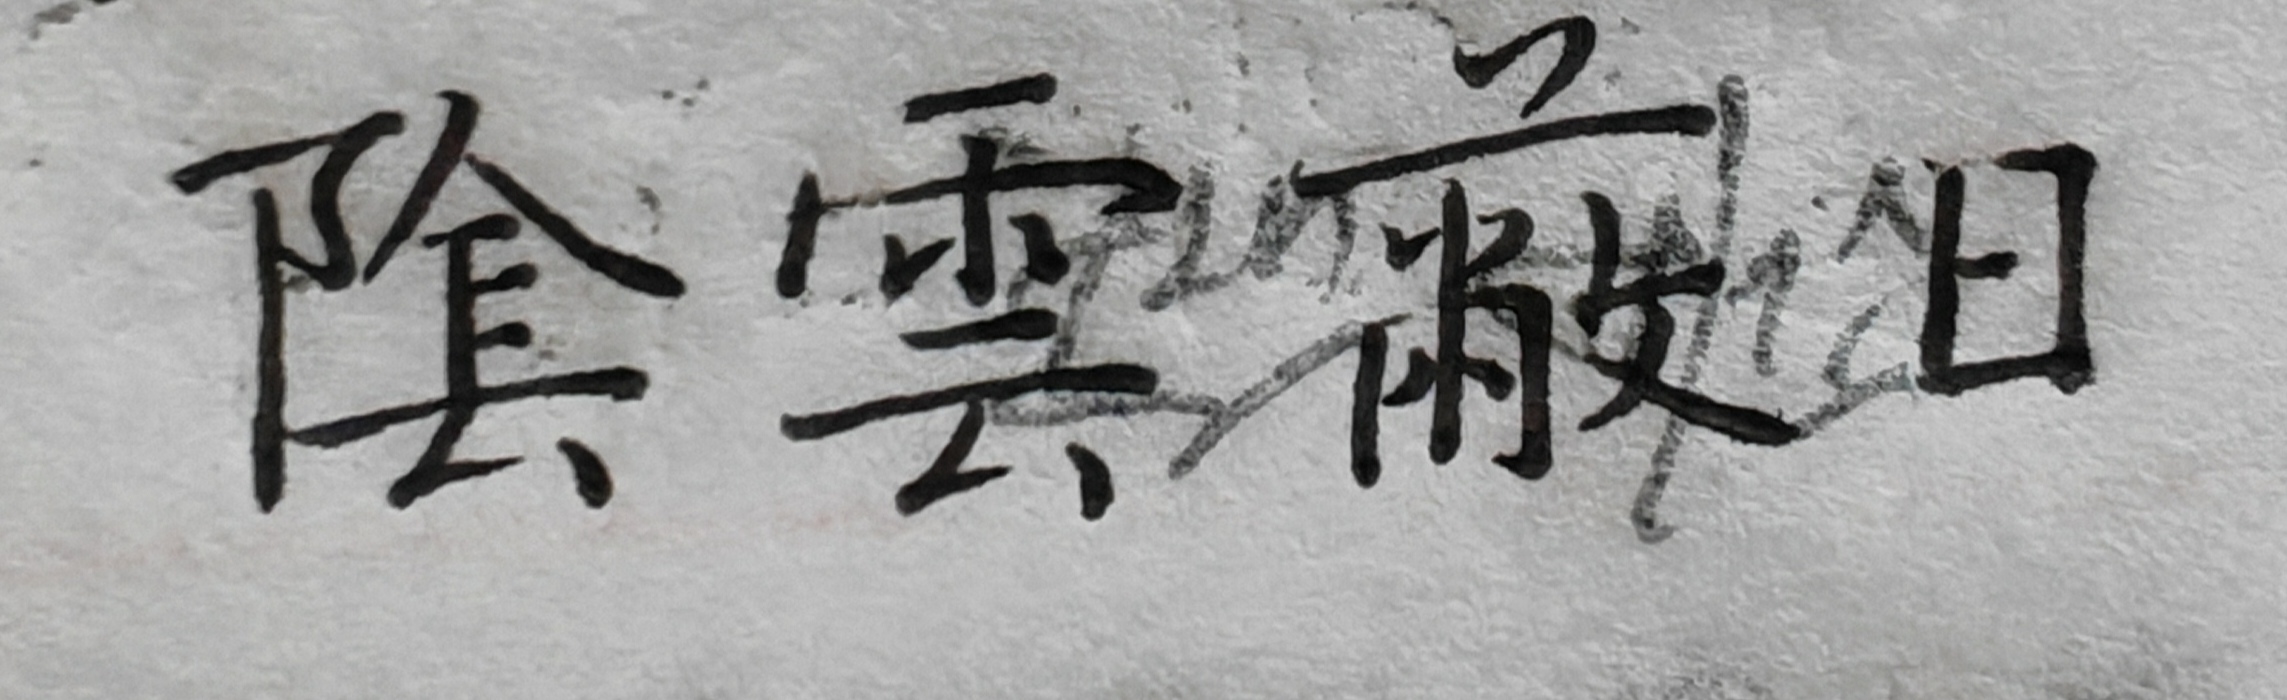 陰雲蔽日